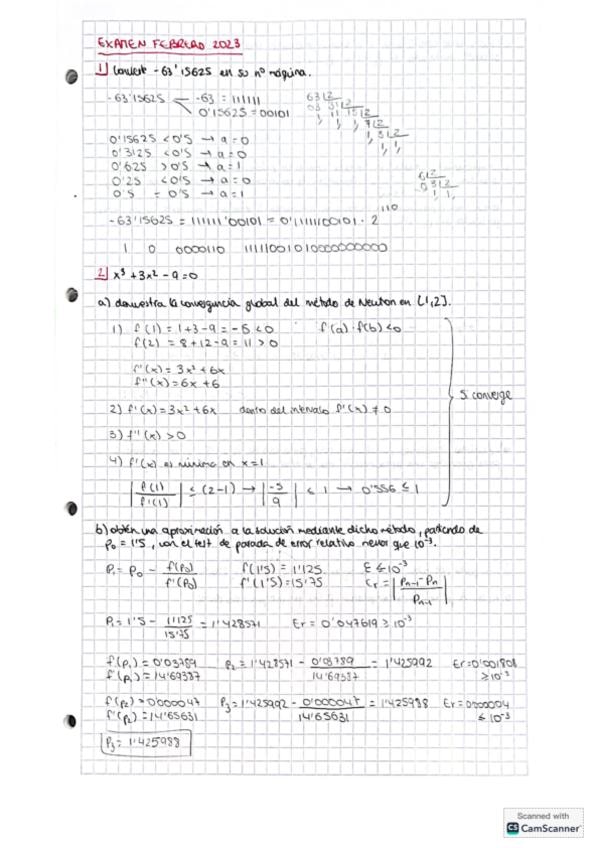 EXAMEN FEBRERO 2023
1) Convert -63'15625 en su nº máquina.
-63'15625 -63 = 111111
0'15625 = 00101
0'15625 < 0'5 → a = 0
0'3125 < 0'5 → a = 0
0'625 > 0'5 → a = 1
0'25 < 0'5 → a = 0
0'5 = 0'5 → a = 1
-63'15625 = 111111'00101 = 0'11111100101 · 2^110
1 0 0000110 1111110010100000000000
2) x³ + 3x² - 9 = 0
a) demuestra la convergencia global del método de Newton en [1,2].
1) f(1) = 1+3-9 = -5 < 0 f(a)·f(b) < 0
f(2) = 8+12-9 = 11 > 0
f'(x) = 3x² + 6x
f''(x) = 6x + 6
Sí converge
2) f'(x) = 3x² + 6x dentro del intervalo f'(x) ≠ 0
3) f''(x) > 0
4) f'(x) es mínima en x = 1
|f(1)/f'(1)| ≤ (2-1) → |-5/9| ≤ 1 → 0'556 ≤ 1
b) obtén una aproximación a la solución mediante dicho método, partiendo de
p₀ = 1'5, con el test de parada de error relativo menor que 10⁻³.
P₁ = P₀ - f(P₀)/f'(P₀) f(1'5) = 1'125 ε ≤ 10⁻³
f'(1'5) = 15'75 Er = |Pn-1 - Pn / Pn-1|
P₁ = 1'5 - 1'125/15'75 = 1'428571 Er = 0'047619 ≥ 10⁻³
f(p₁) = 0'03789 p₂ = 1'428571 - 0'03789/14'69387 = 1'425992 Er = 0'001801
f'(p₁) = 14'69387 ≥ 10⁻³
f(p₂) = 0'000047 P₃ = 1'425992 - 0'000047/14'65631 = 1'425988 Er = 0'000004
f'(p₂) = 14'65631 ≤ 10⁻³
P₃ = 1'425988
Scanned with
CS CamScanner